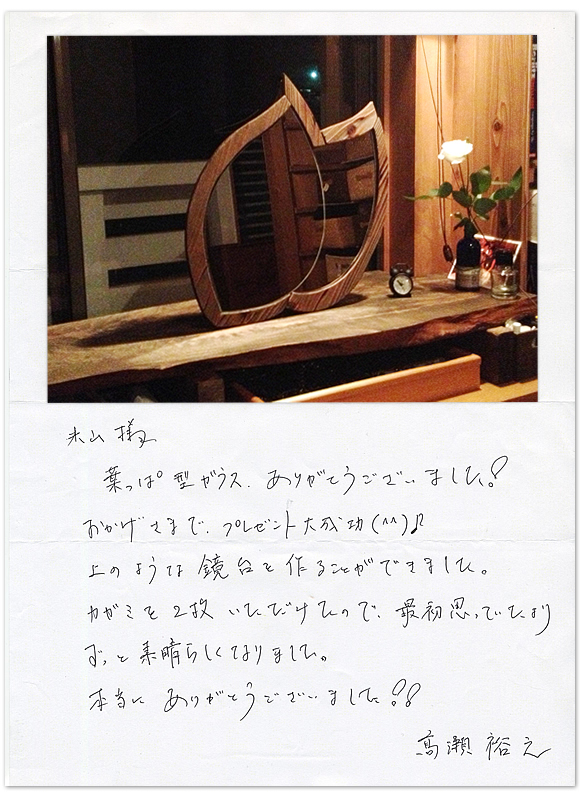 米山 様
葉っぱ型ガラス、ありがとうございました!
おかげさまで、プレゼント大成功(^^)♪
上のような鏡台を作ることができました。
カガミを2枚いただけたので、最初思っていたより
ずっと素晴らしくなりました。
本当に ありがとうございました!!
高瀬 裕之